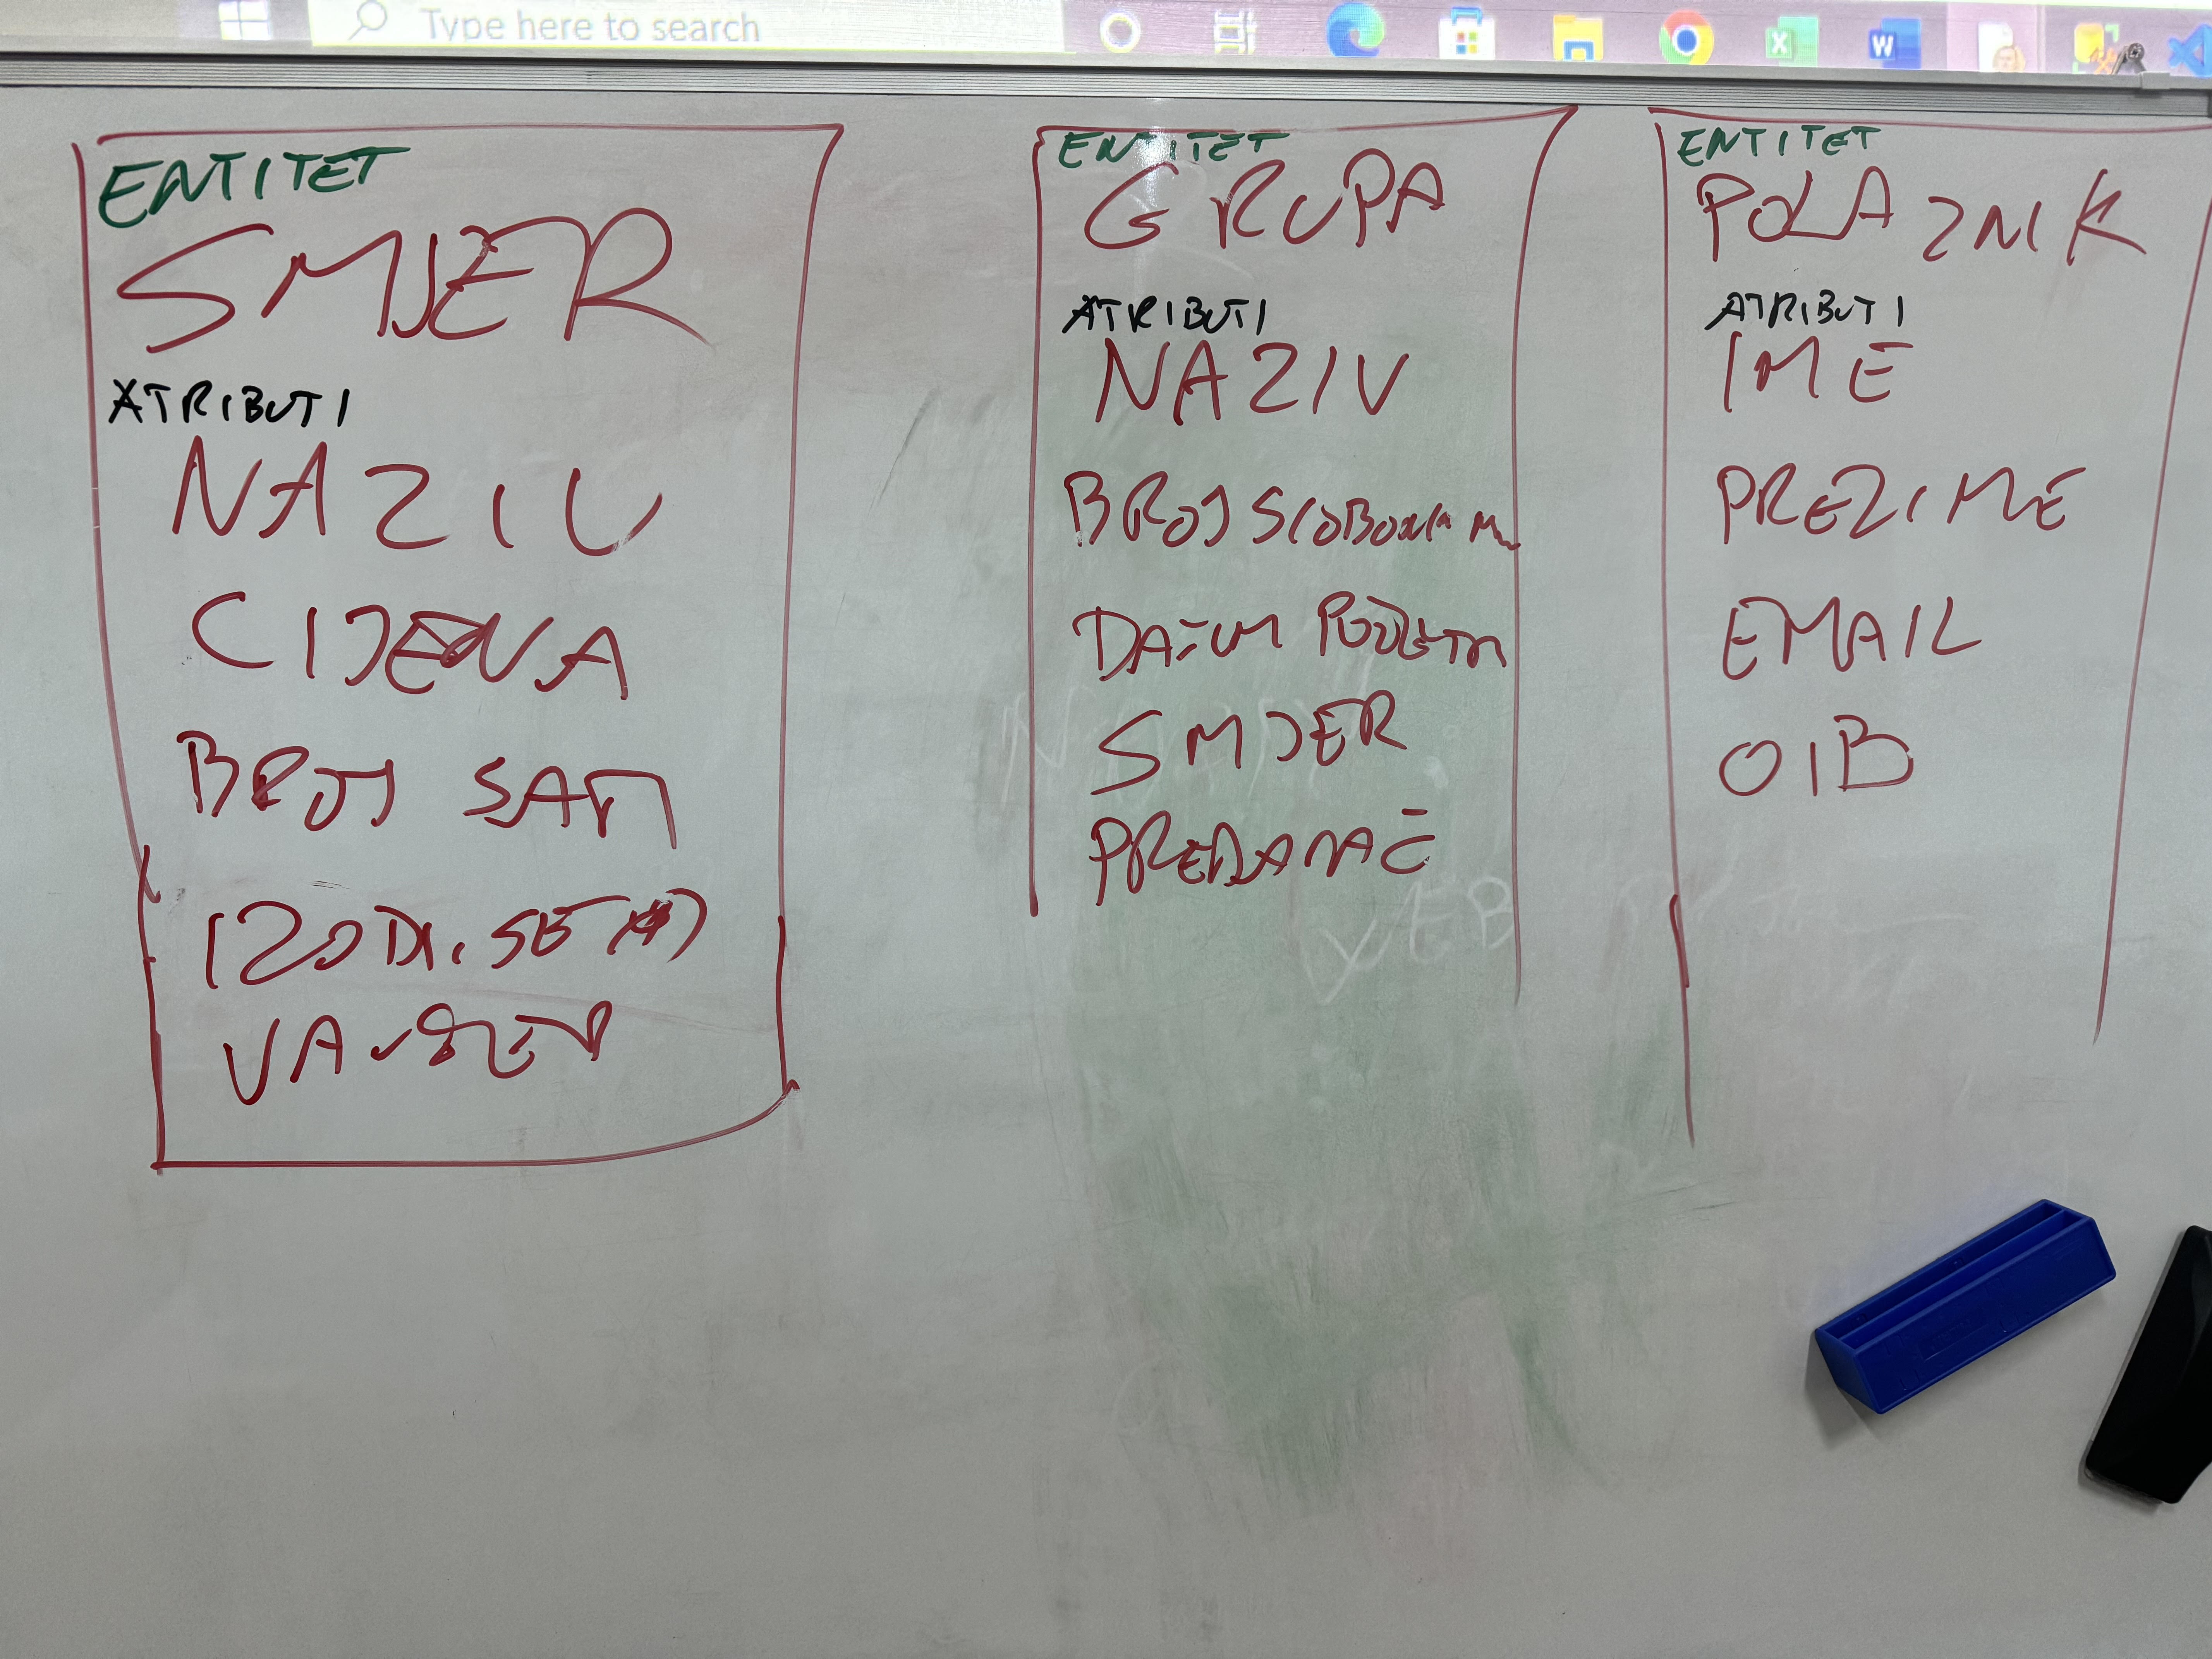 Type here to search
ENTITET
SMJER
ATRIBUTI
NAZIV
CIJENA
BROJ SATI
IZVODI SE
VAUČER
ENTITET
GRUPA
ATRIBUTI
NAZIV
BROJ SLOBODNIH M
DATUM POČETKA
SMJER
PREDAVAČ
ENTITET
POLAZNIK
ATRIBUTI
IME
PREZIME
EMAIL
OIB
WEB